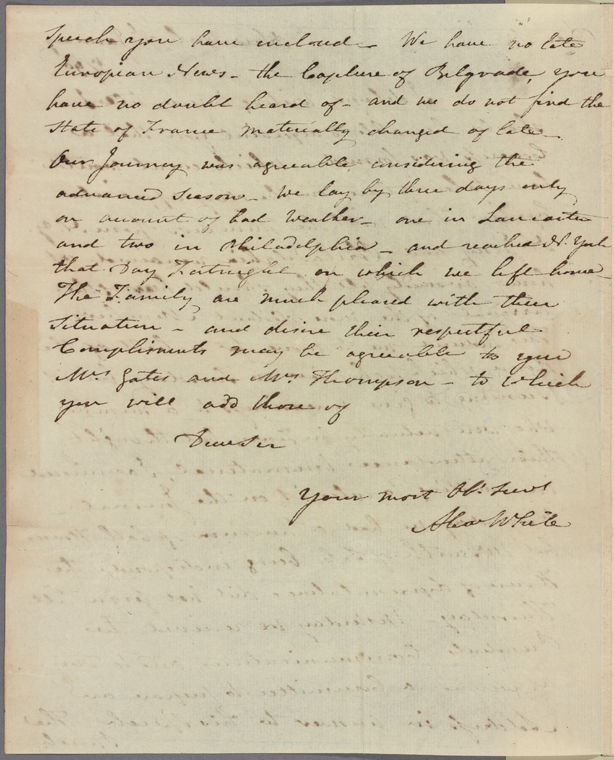 Speech you have inclosed – We have no late
European News – the Capture of Belgrade, you
have no doubt heard of – and we do not find the
State of France materially changed of late –
Our Journey was agreeable considering the
advanced Season – We lay by three days only
on account of bad Weather – one in Lancaster
and two in Philadelphia – and reached N. York
that Day Fortnight on which we left home –
The Family are much pleased with their
Situation – and desire their respectful
Compliments may be agreeable to you
Mrs. Gates and Mrs. Thompson – to which
you will add those of
Dear Sir
Your most Ob. Servt
Alexr White